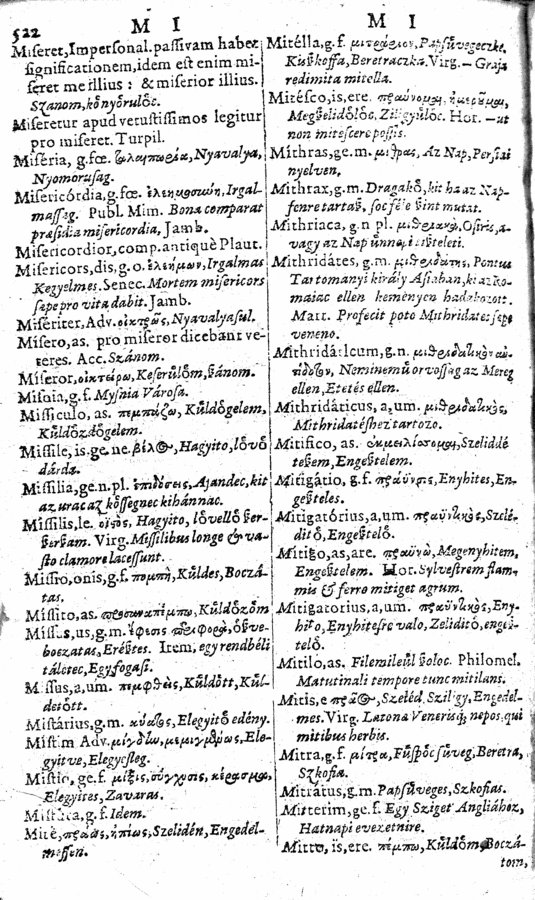 522 M I M I
Miseret, Impersonal. passivam habet
significationem, idem est enim mi-
seret me illius : & miserior illius.
Szanom, kőnyőrulőc.
Miseretur apud vetustissimos legitur
pro miseret. Turpil.
Miseria, g. fœ. ταλαιπωρία, Nyavalya,
Nyomorusag.
Misericórdia, g. fœ. ἐλεημοσύνη, Irgal-
massag. Publ. Mim. Bona comparat
præsidia misericordia, Jamb.
Misericordior, comp. antiquè Plaut.
Misericors, dis, g. o. ἐλεήμων, Irgalmas
Kegyelmes. Senec. Mortem misericors
sæpe pro vita dabit. Jamb.
Misériter, Adv. οἰκτρῶς, Nyavalyasul.
Misero, as. pro miseror dicebant ve-
teres. Acc. Szánom.
Miseror, οἰκτείρω, Keserűlőm, ßánom.
Misoia, g. f. Mysnia Városa.
Missiculo, as. πεμπάζω, Kűldőgelem,
Kűldőzdőgelem.
Missile, is. ge. ne. βέλος, Hagyito, lővő
dárda.
Missilia, ge. n. pl. ἐπιδόσεις, Ajandec, kit
az urac az kősségnec kihánnac.
Missilis, le. οἰσὸς, Hagyito, lővellő ßer-
ßerßam. Virg. Missilibus longe & va-
sto clamore lacessunt.
Missio, onis, g. f. πομπὴ, Kűldes, Boczá-
tas.
Missito, as. προσαναπέμπω, Kűldőzőm
Missus, us, g. m. ἄφεσις
boczatas, Eréßtes. Item, egy rendbéli
tálétec, Egy fogasi.
Missus, a, um. πεμφθεὶς, Kűldőtt, Kűl-
detőtt.
Mistárius, g. m. κύαθος, Elegyitő edény.
Mistim Adv. μίγδην, μεμιγμένως, Ele-
gyitve, Elegyesleg.
Mistio, ge. f. μίξις, σύγχυσις, κέρασμα,
Elegyites, Zavaras.
Mistura, g. f. Idem.
Mitè, πράως, ἠπίως, Szelidén, Engedel-
messen.
Mitélla, g. f. μιτράριον, Papsűvegeczke,
Kisßkoffia, Beretraczka. Virg. — Graja
redimita mitella.
Mitésco, is, ere. πραΰνομαι, ἡμερῦμαι,
Megßelidőlőc, Ziligyűlőc. Hor. — ut
non mitescere possis.
Mithras, ge. m. μίθρας, Az Nap, Persiai
nyelven.
Mithrax, g. m. Dragakő, kit ha az Nap-
fenre tartaß, soc féle ßint mutat.
Mithriaca, g. n pl. μιθριακὰ, Osiris, a-
vagy az Nap űnnepi tißteleti.
Mithridátes, g. m. μιθριδάτης, Pontus
Tartomanyi király Asiaban, ki az Ro-
maiac ellen keményen hadakozott.
Mart. Profecit poto Mithridates sæpe
veneno.
Mithridáticum, g. n. μιθριδατικὸν ἀν-
τίδοτον, Neminemű orvossag az Mereg
ellen, Etetés ellen.
Mithridáticus, a, um. μιθριδατικὸς,
Mithridatéshez tartozo.
Mitifico, as. ἐκμειλίσσομαι, Szeliddé
teßem, Engeßtelem.
Mitigátio, g. f. πράϋνσις, Enyhites, En-
geßteles.
Mitigatórius, a, um. πραϋντικὸς, Szelé-
ditő, Engeßtelő.
Mitigo, as, are. πραΰνω, Megenyhitem,
Engeßtelem. Hor. Sylvestrem flam-
mis & ferro mitiget agrum.
Mitigatorius, a, um. πραϋντικὸς, Eny-
hitő, Enyhitesre valo, Zeliditő, engeß-
telő.
Mitilo, as. Filemileűl ßoloc. Philomel.
Matutinali tempore tunc mitilani.
Mitis, e πρᾶος, Szeléd, Szilígy, Engedel-
mes. Virg. Latona Venerisq́, nepos, qui
mitibus herbis.
Mitra, g. f. μίτρα, Fűspőc sűveg, Beretra,
Szkofia.
Mitratus, g. m. Papsűveges, Szkofias.
Mitterim, ge. f. Egy Sziget Angliához,
Hatnapi evezetnire.
Mitto, is, ere. πέμπω, Kűldőm Boczá-
tom,